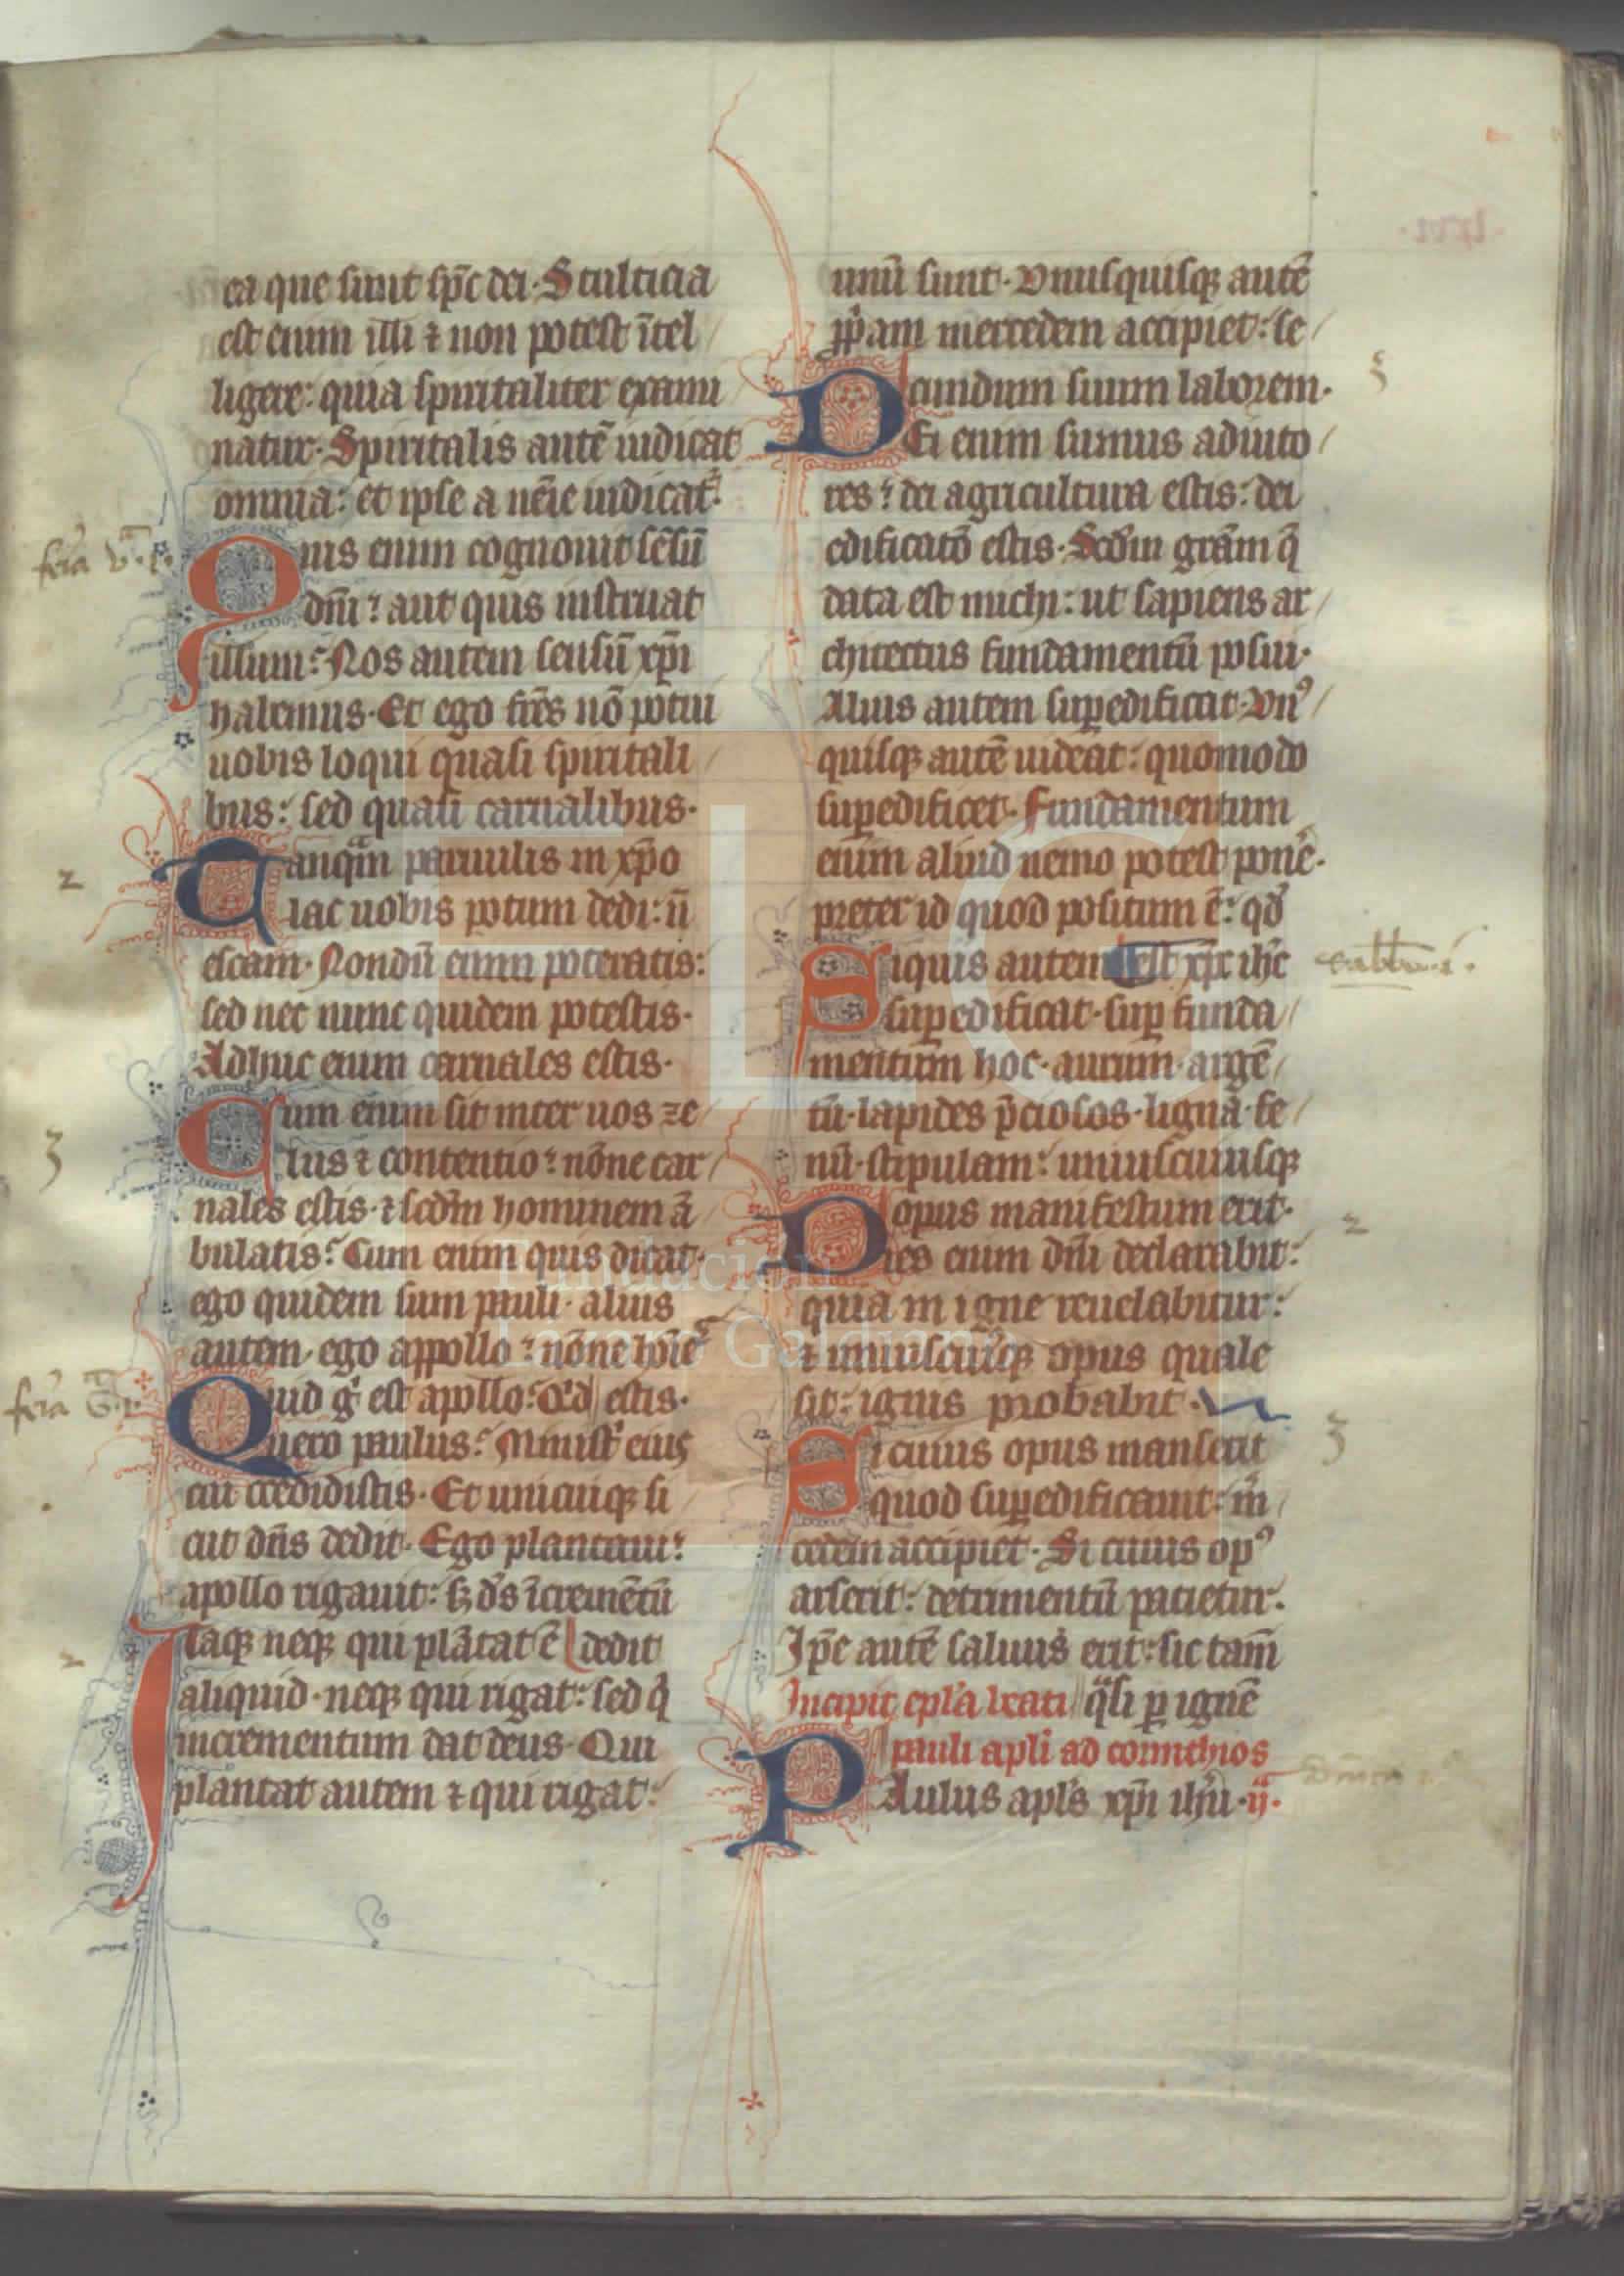 ea que sunt sp̄c dei. Stulticia
est enim illi ⁊ non potest ītel
ligere: quia spiritaliter exami
natur. Spiritalis autē iudicat
omnia: et ipse a nēīe iudicat᷑.
fer̄ia v.ͣ 1.
Quis enim cognouit sēsū
dn̄i? aut quis instruat
illum? Nos autem sensū xp̄i
habemus. Et ego fr̄es nō potui
uobis loqui quasi spiritali
bus: sed quasi carnalibus.
2
Tanq̄m paruulis in xp̄o
lac uobis potum dedi: n̄
escam. Nondū enim poteratis:
sed nec nunc quidem potestis.
Adhuc enim carnales estis.
3
Cum enim sit inter uos ze
lus ⁊ contentio: nōne car
nales estis. ⁊ scd̄m hominem ā
bulatis? Cum enim quis dicat.
ego quidem sum pauli. alius
autem. ego appollo: nōne hōīēs
fer̄ia 6.ͣ 1.
Quid g̊ est apollo? Q'd estis.
Uero paulus? Minist᷑ eius
cui credidistis. Et unicuiqꝫ si
cut dn̄s dedit. Ego plantaui:
apollo rigauit: sꝫ d's īcremētū
2
Itaqꝫ neqꝫ qui plātat ē dedit
aliquid. neqꝫ qui rigat: sed q̇
incrementum dat deus. Qui
plantat autem ⁊ qui rigat:
lxvi.
unū sunt. Vnusquisqꝫ autē
ꝓp̄am mercedem accipiet: se
3
cundum suum laborem.
Dei enim sumus adiuto
res: dei agricultura estis: dei
edificatō estis. Scd̄m grām q̄
data est michi: ut sapiens ar
chitectus fundamentū posui.
Alius autem suꝑedificat. Vnꝰ
quisqꝫ autē uideat: quomodo
suꝑedificet. Fundamentum
enim aliud nemo potest pon̄e.
preter id quod positum ē: qd̄
Siquis autem est xp̄c ih̄c
sabbto. 1.
suꝑedificat. suꝑ funda
mentum hoc. aurum. argē
tū. lapides p̄ciosos. ligna. fe
nū. stipulam: uniuscuiusqꝫ
opus manifestum erit.
2
Dies enim dn̄i declarabit:
quia in igne reuelabitur:
⁊ uniuscuiꝰqꝫ opus quale
sit: ignis probabit.
3
Si cuius opus manserit
quod suꝑedificauit: m̄
cedem accipiet. Si cuius opꝰ
arserit: detrimentū patietur.
Ip̄e autē saluus erit: sic tam̄
Incipit epl̄a beati q̄si ꝑ ignē
pauli apli ad corinthios
Paulus apl's xp̄i ih̄u. ij.